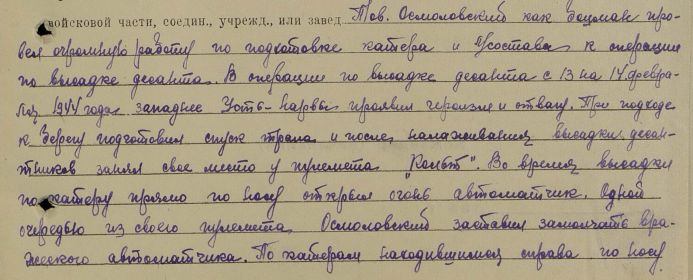 войсковой части, соедин., учрежд., или завед. Тов. Осмоловский как боцман про-
вел огромную работу по подготовке катера и л/состава к операции
по высадке десанта. В операции по высадке десанта с 13 на 14 февра-
ля 1944 года западнее Усть-Нарвы проявил героизм и отвагу. При подходе
к берегу подготовил спуск трапа и после налаживания высадки десан-
тников занял свое место у пулемета "Кольт". Во время высадки
по катеру прямо по носу открыл огонь автоматчик. Одной
очередью из своего пулемета Осмоловский заставил замолчать вра-
жеского автоматчика. По катерам находившимся справа по носу